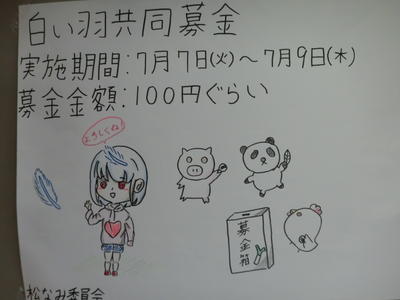 白い羽共同募金
実施期間:7月7日(火)～7月9日(木)
募金金額:100円ぐらい
よろしくね
募金箱
松なみ委員会